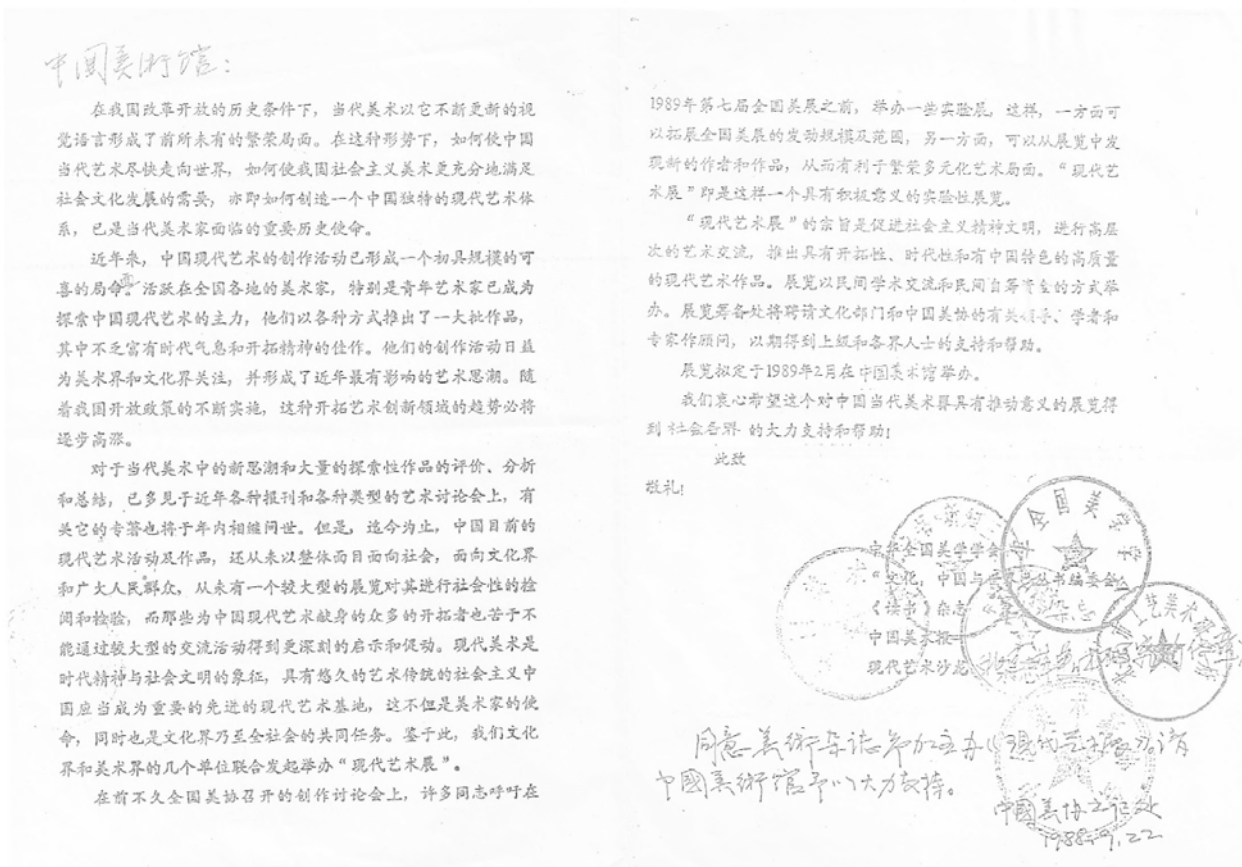 中国美術馆：
在我国改革开放的历史条件下，当代美术以它不断更新的视
觉语言形成了前所未有的繁荣局面。在这种形势下，如何使中国
当代艺术尽快走向世界，如何使我国社会主义美术更充分地满足
社会文化发展的需要，亦即如何创造一个中国独特的现代艺术体
系，已是当代美术家面临的重要历史使命。
近年来，中国现代艺术的创作活动已形成一个初具规模的可
喜的局面。活跃在全国各地的美术家，特别是青年艺术家已成为
探索中国现代艺术的主力，他们以各种方式推出了一大批作品，
其中不乏富有时代气息和开拓精神的佳作。他们的创作活动日益
为美术界和文化界关注，并形成了近年最有影响的艺术思潮。随
着我国开放政策的不断实施，这种开拓艺术创新领域的趋势必将
逐步高涨。
对于当代美术中的新思潮和大量的探索性作品的评价、分析
和总结，已多见于近年各种报刊和各种类型的艺术讨论会上，有
关它的专著也将于年内相继问世。但是，迄今为止，中国目前的
现代艺术活动及作品，还从未以整体面目面向社会，面向文化界
和广大人民群众，从未有一个较大型的展览对其进行社会性的检
阅和检验，而那些为中国现代艺术献身的众多的开拓者也苦于不
能通过较大型的交流活动得到更深刻的启示和促动。现代美术是
时代精神与社会文明的象征，具有悠久的艺术传统的社会主义中
国应当成为重要的先进的现代艺术基地，这不但是美术家的使
命，同时也是文化界乃至全社会的共同任务。鉴于此，我们文化
界和美术界的几个单位联合发起举办“现代艺术展”。
在前不久全国美协召开的创作讨论会上，许多同志呼吁在
1989年第七届全国美展之前，举办一些实验展，这样，一方面可
以拓展全国美展的发动规模及范围，另一方面，可以从展览中发
现新的作者和作品，从而有利于繁荣多元化艺术局面。“现代艺
术展”即是这样一个具有积极意义的实验性展览。
“现代艺术展”的宗旨是促进社会主义精神文明，进行高层
次的艺术交流，推出具有开拓性、时代性和有中国特色的高质量
的现代艺术作品。展览以民间学术交流和民间自筹资金的方式举
办。展览筹备处将聘请文化部门和中国美协的有关领导、学者和
专家作顾问，以期得到上级和各界人士的支持和帮助。
展览拟定于1989年2月在中国美术馆举办。
我们衷心希望这个对中国当代美术界具有推动意义的展览得
到社会各界的大力支持和帮助！
此致
敬礼！
中华全国美学学会
“文化，中国与世界”丛书编委会
《读书》杂志
中国美术报
现代艺术沙龙
同意美術杂志参加主办《现代艺术展》。请
中國美術馆予以大力支持。
中國美协书记处
1988.9.22